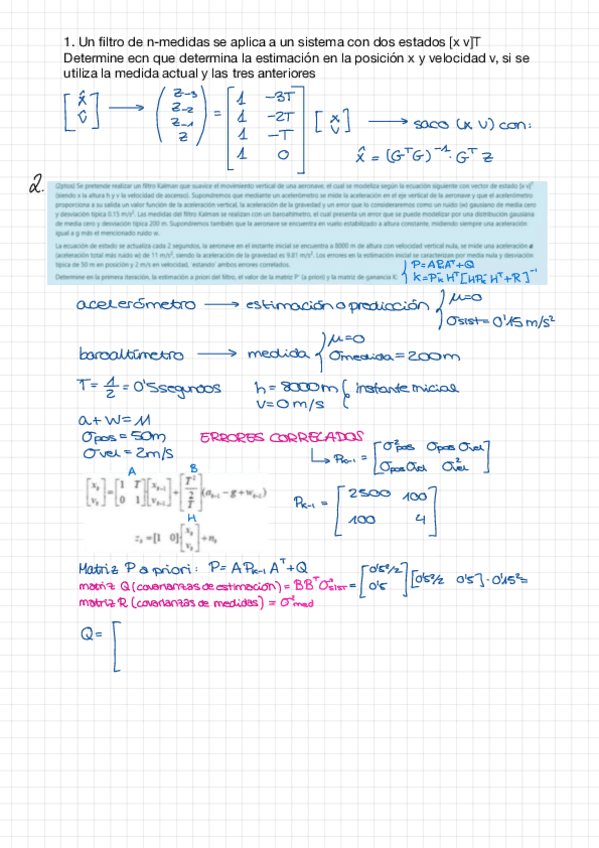 1. Un filtro de n-medidas se aplica a un sistema con dos estados [x v]T
Determine ecn que determina la estimación en la posición x y velocidad v, si se
utiliza la medida actual y las tres anteriores
[x̂ v̂] → (z-3 z-2 z-1 z) = [1 -3T; 1 -2T; 1 -T; 1 0] [x v] → saco (x v) con:
x̂ = (GᵀG)⁻¹·Gᵀ z
2.
(2ptos) Se pretende realizar un filtro Kalman que suavice el movimiento vertical de una aeronave, el cual se modeliza según la ecuación siguiente con vector de estado [x v]ᵀ
(siendo x la altura h y v la velocidad de ascenso). Supondremos que mediante un acelerómetro se mide la aceleración en el eje vertical de la aeronave y que el acelerómetro
proporciona a su salida un valor función de la aceleración vertical, la aceleración de la gravedad y un error que lo consideraremos como un ruido (w) gausiano de media cero
y desviación típica 0.15 m/s². Las medidas del filtro Kalman se realizan con un baroaltímetro, el cual presenta un error que se puede modelizar por una distribución gausiana
de media cero y desviación típica 200 m. Supondremos también que la aeronave se encuentra en vuelo estabilizado a altura constante, midiendo siempre una aceleración
igual a g más el mencionado ruido w.
La ecuación de estado se actualiza cada 2 segundos, la aeronave en el instante inicial se encuentra a 8000 m de altura con velocidad vertical nula, se mide una aceleración a
(aceleración total más ruido w) de 11 m/s², siendo la aceleración de la gravedad es 9.81 m/s². Los errores en la estimación inicial se caracterizan por media nula y desviación
típica de 50 m en posición y 2 m/s en velocidad, estando ambos errores correlados.
Determine en la primera iteración, la estimación a priori del filtro, el valor de la matriz P⁻ (a priori) y la matriz de ganancia K.
P=APAᵀ+Q
K=P⁻ₖHᵀ[HP⁻ₖHᵀ+R]⁻¹
acelerómetro → estimación o predicción { μ=0
σsist=0'15 m/s²
baroaltímetro → medida { μ=0
σmedida=200m
T= 1/2 = 0'5 segundos h=8000m v=0m/s { instante inicial
a+w=M
σpos=50m ERRORES CORRELADOS
σvel=2m/s ↳ Pk-1 = [σ²pos σpos σvel; σpos σvel σ²vel]
A B
[xₖ vₖ] = [1 T; 0 1] [xₖ₋₁ vₖ₋₁] + [T²/2 T] (aₖ₋₁ - g + wₖ₋₁)
Pk-1 = [2500 100; 100 4]
H
zₖ = [1 0] [xₖ vₖ] + nₖ
Matriz P a priori: P= A Pk-1 Aᵀ+Q
matriz Q (covarianzas de estimación) = BBᵀσ²sist = [0'5²/2 0'5] [0'5²/2 0'5]·0'15²=
matriz R (covarianzas de medidas) = σ²med
Q= [